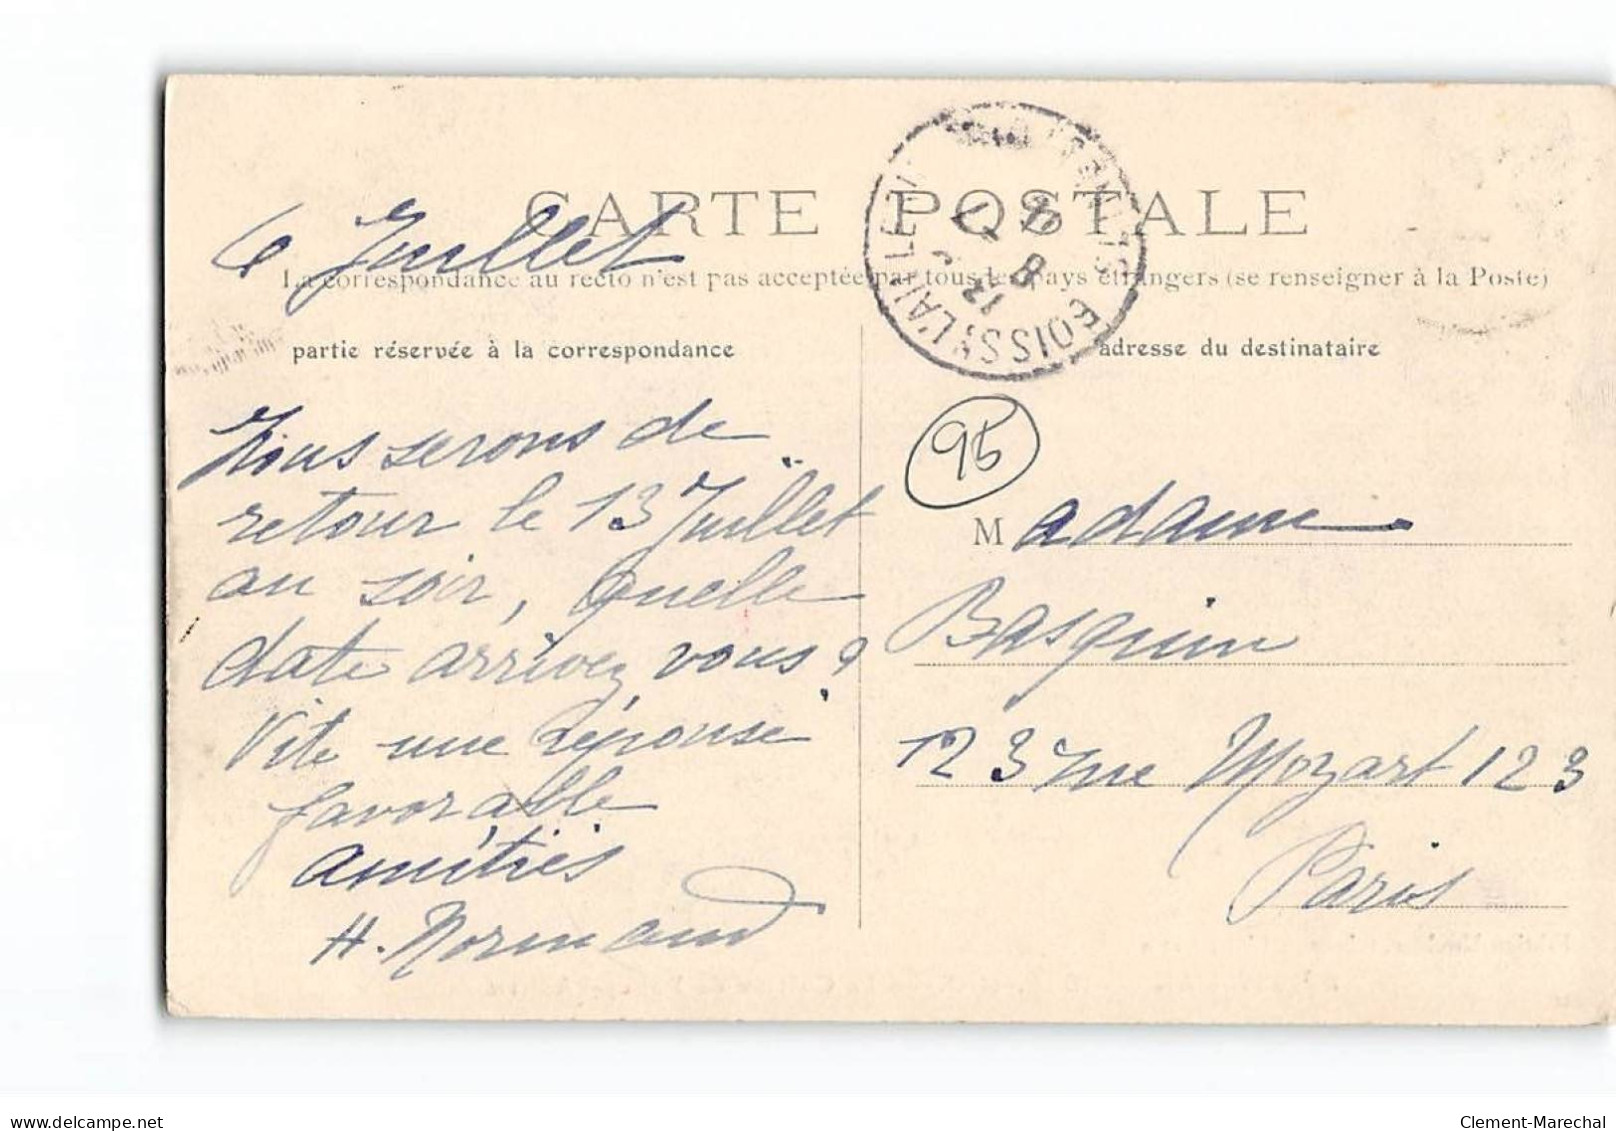 CARTE POSTALE
6 Juillet
La correspondance au recto n'est pas acceptée par tous les pays étrangers (se renseigner à la Poste)
partie réservée à la correspondance
Nous serons de
retour le 13 Juillet
au soir, quelle
date arrivez vous ?
Vite une réponse
favorable
amitiés
H. Normand
BOISSY L'AILLERIE
95
adresse du destinataire
Madame
Basquin
123 rue Mozart 123
Paris
delcampe.net
Clement-Marechal